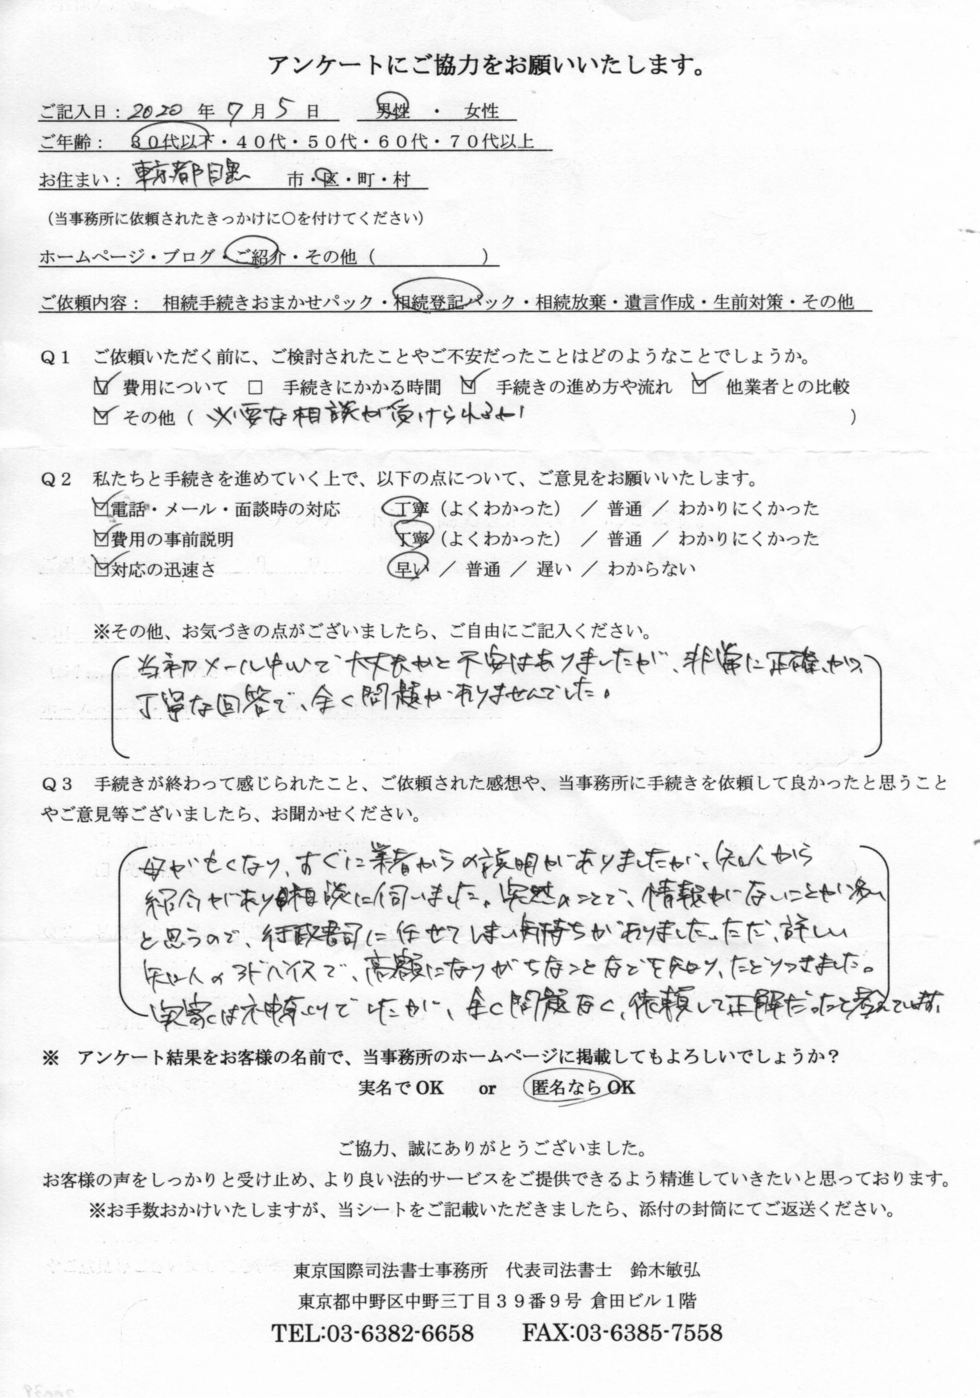 アンケートにご協力をお願いいたします。
ご記入日：2020 年 7 月 5 日　男性 ・ 女性
ご年齢： 30代以下・40代・50代・60代・70代以上
お住まい：東京都目黒 市・区・町・村
（当事務所に依頼されたきっかけに○を付けてください）
ホームページ・ブログ・ご紹介・その他（　　　　　　）
ご依頼内容： 相続手続きおまかせパック・相続登記パック・相続放棄・遺言作成・生前対策・その他
Q1　ご依頼いただく前に、ご検討されたことやご不安だったことはどのようなことでしょうか。
☑ 費用について □ 手続きにかかる時間 ☑ 手続きの進め方や流れ ☑ 他業者との比較
☑ その他（ 必要な相談が受けられるか ）
Q2　私たちと手続きを進めていく上で、以下の点について、ご意見をお願いいたします。
☑電話・メール・面談時の対応　丁寧（よくわかった） ／ 普通 ／ わかりにくかった
☑費用の事前説明　丁寧（よくわかった） ／ 普通 ／ わかりにくかった
☑対応の迅速さ　早い ／ 普通 ／ 遅い ／ わからない
※その他、お気づきの点がございましたら、ご自由にご記入ください。
当初メール中心で大丈夫かと不安はありましたが、非常に正確かつ、
丁寧な回答で、全く問題がありませんでした。
Q3　手続きが終わって感じられたこと、ご依頼された感想や、当事務所に手続きを依頼して良かったと思うこと
やご意見等ございましたら、お聞かせください。
母が亡くなり、すぐに業者からの説明がありましたが、知人から
紹介があり相談に伺いました。突然のことで、情報がないことが多い
と思うので、行政書司に任せてしまい気持ちがありました。ただ、詳しい
知人のアドバイスで、高額になりがちなことなどを知り、たどりつきました。
実家は神奈川でしたが、全く問題なく、依頼して正解だったと考えています。
※　アンケート結果をお客様の名前で、当事務所のホームページに掲載してもよろしいでしょうか？
実名でOK　or　匿名ならOK
ご協力、誠にありがとうございました。
お客様の声をしっかりと受け止め、より良い法的サービスをご提供できるよう精進していきたいと思っております。
※お手数おかけいたしますが、当シートをご記載いただきましたら、添付の封筒にてご返送ください。
東京国際司法書士事務所　代表司法書士　鈴木敏弘
東京都中野区中野三丁目39番9号 倉田ビル1階
TEL:03-6382-6658　FAX:03-6385-7558